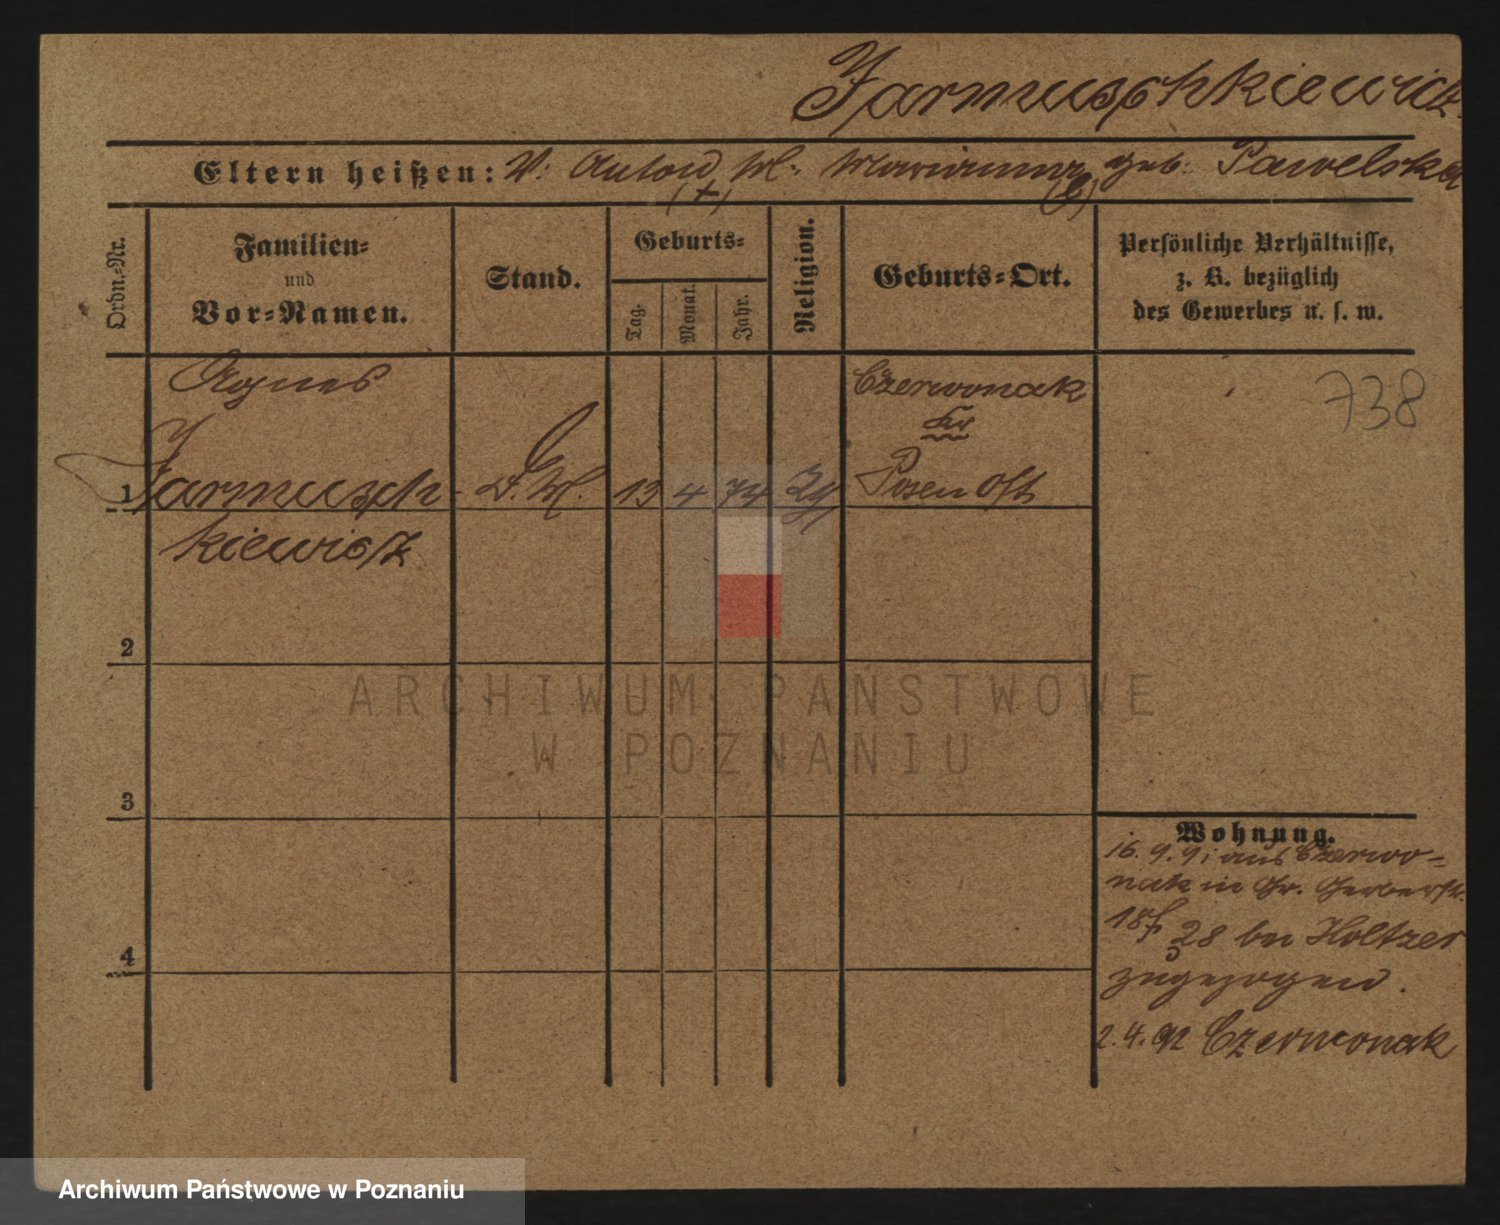 Jarmuschkiewicz.
Eltern heißen: V: Anton, M. Marianna, geb. Pawelska
(+)
Ordn.-Nr.
Familien-
und
Vor-Namen.
Stand.
Geburts-
Tag.
Monat.
Jahr.
Religion.
Geburts-Ort.
Persönliche Verhältnisse,
z. B. bezüglich
des Gewerbes u. s. w.
738
Agnes
Czerwonak
Kr
1 Jarmusch- D. M. 13 4 74 Posen Ost
kiewicz
2
ARCHIWUM PAŃSTWOWE
W POZNANIU
3
Wohnung.
16. 9. 91 aus Czerwo-
nak in Gr. Gerberstr.
28 bei Holtzer
zugezogen.
4
2. 4. 92 Czerwonak
Archiwum Państwowe w Poznaniu